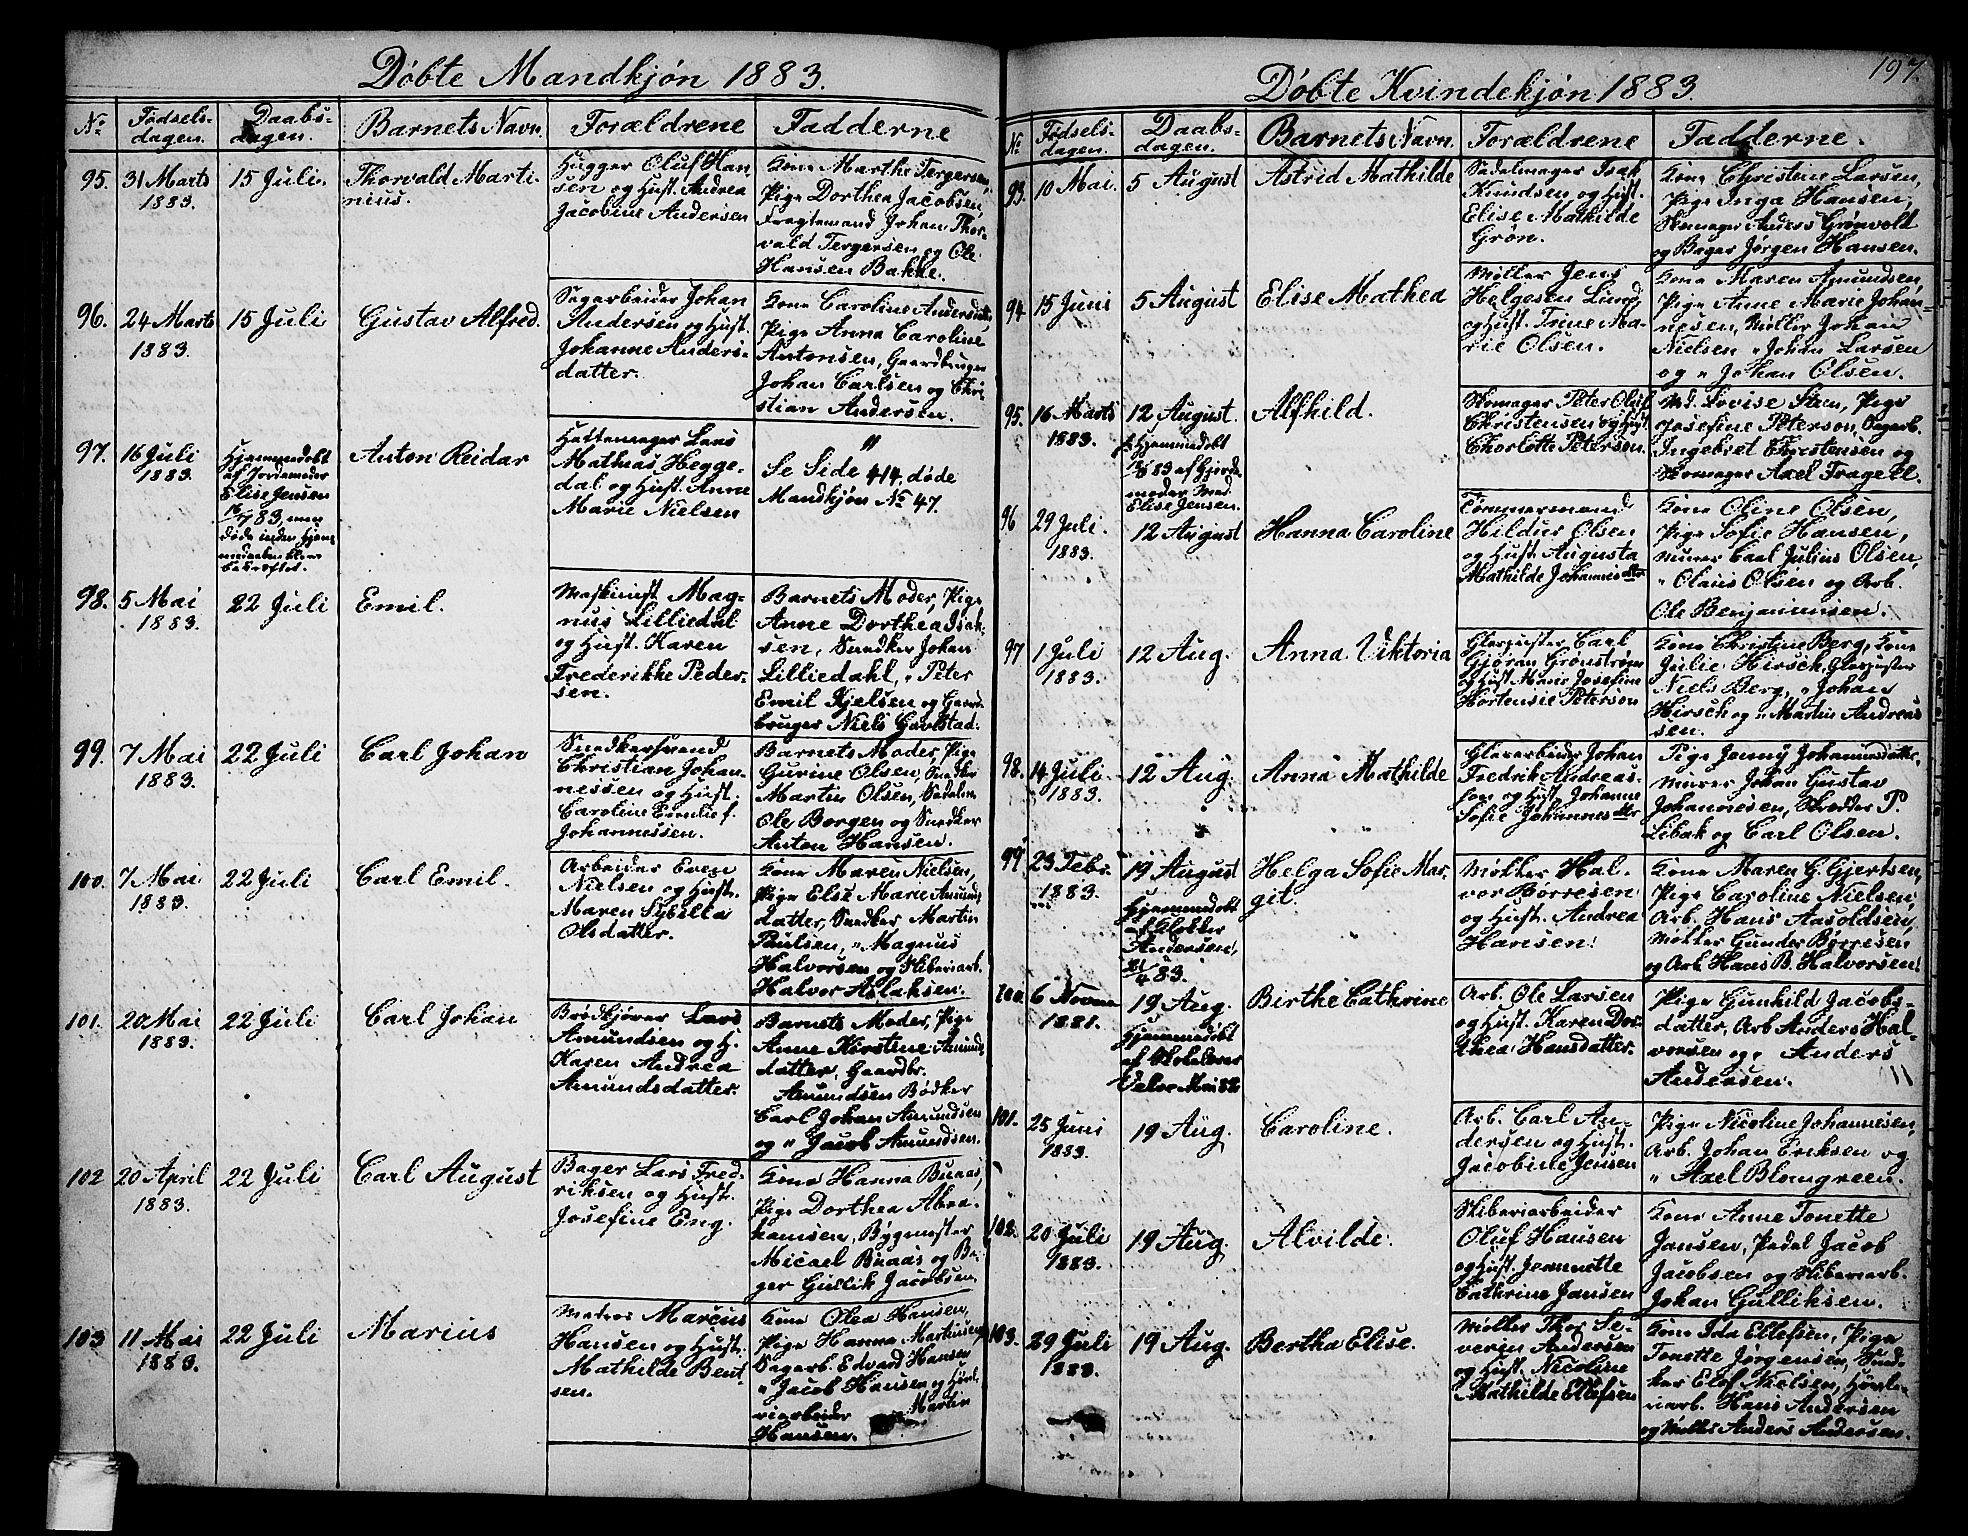 Døbte Mandkjøn 1883.
No
Fødsels-
dagen.
Daabs-
dagen.
Barnets Navn.
Forældrene
Fadderne
95.
31 Marts
1883.
15 Juli.
Thorvald Marti-
nius.
Hugger Oluf Han
sen og Hust. Andrea
Jacobine Andersen
Kone Marthe Tergersen,
Pige Dorthea Jacobsen,
Fragtemand Johan Thor-
vald Tergersen og Ole
Hansen Bakke.
96.
24 Marts
1883.
15 Juli
Gustav Alfred.
Sagarbeider Johan
Andersen og Hust.
Johanne Anders-
datter.
Kone Caroline Andersdatter
Pige Anna Caroline
Antonsen, Gaardbruger
Johan Carlsen og Chri-
stian Andersen.
97.
16 Juli
1883.
Hjemmedøbt
af Jordemoder
Elise Jensen
16/7 83, men
døde inden Hjem-
medaaben blev
bekræftet.
Anton Reidar
Hattemager Lars
Mathias Hegge-
dal og Hust. Anne
Marie Nielsen
"
Se Side 414, døde
Mandkjøn No 47.
98.
5 Mai
1883.
22 Juli
Emil.
Maskinist Mag-
nus Lilliedal
og Hust. Karen
Frederikke Peder-
sen.
Barnets Moder, Pige
Anne Dorthea Isak-
sen, Snedker Johan
Lilliedahl, " Peter
Emil Kjelsen og Gaard-
bruger Niels Gavlstad.
99.
7 Mai
1883.
22 Juli
Carl Johan
Snedkersvend
Christian Johan-
nessen og Hust.
Caroline Emilie f.
Johannessen.
Barnets Moder, Pige
Gurine Olsen, Snedker
Martin Olsen, Sadelm.
Ole Borgen og Snedker
Anton Hansen.
100.
7 Mai
1883.
22 Juli
Carl Emil.
Arbeider Even
Nielsen og Hust.
Maren Sybilla
Olsdatter.
Kone Maren Nielsen,
Pige Else Marie Amunds
datter, Snedker Martin
Paulsen, " Magnus
Halvorsen og Stiberiarb.
Halvor Aslaksen.
101.
20 Mai
1883.
22 Juli
Carl Johan
Brødkjører Lars
Amundsen og H.
Karen Andrea
Amundsdatter.
Barnets Moder, Pige
Anne Kirstene Amunds
datter, Gaardbr.
Amundsen Bødker
Carl Johan Amundsen
og " Jacob Amundsen.
102
20 April
1883.
22 Juli
Carl August
Bager Lars Fred-
riksen og Hust.
Josefine Eng.
Kone Hanna Buaas,
Pige Dorthea Abra-
hamsen, Bygmester
Micael Buaas og Ba-
ger Gullik Jacobsen.
103
11 Mai
1883.
22 Juli
Marius
Matros Marcus
Hansen og Hust.
Mathilde Bent-
sen.
Kone Olea Hansen,
Pige Hanna Martinsen
Sagarb. Edvard Hansen
" Jacob Hansen og Høvle-
riarbeider Martin
Hansen.
Døbte Kvindekjøn 1883.
197.
No
Fødsels-
dagen.
Daabs-
dagen.
Barnets Navn.
Forældrene
Fadderne.
93.
10 Mai.
5 August
Astrid Mathilde
Sadelmager Isak
Knudsen og Hust.
Elise Mathilde
Grøn.
Kone Christine Larsen,
Pige Inga Hansen,
Skomager Anders Grønvold
og Bager Jørgen Hansen.
94
15 Juni
5 August
Elise Mathea
Møller Jens
Helgesen Lund
og Hust. Trine Ma-
rie Olsen.
Kone Maren Amundsen,
Pige Anne Marie Johan-
nesen, Møller Johan
Nielsen " Johan Larsen
og " Johan Olsen.
95.
16 Marts
1883.
12 August.
Hjemmedøbt
af Gjorde
moder Mad.
Elise Jensen.
Alfhild.
Skomager Peter Oluf
Christensen og Hust.
Charlotte Petersen.
Md. Lovise Steen, Pige
Josefine Peterson, Sagarb.
Ingebret Christensen og
Skomager Axel Fragell.
96
29 Juli.
1883.
12 August
Hanna Caroline
Tømmermand
Hildus Olsen
og Hust. Augusta
Mathilde Johannisdtr
Kone Oline Olsen,
Pige Sofie Hansen,
Murer Carl Julius Olsen,
" Olaus Olsen og Arb.
Ole Benjaminsen.
97
1 Juli
1883.
12 Aug.
Anna Viktoria
Glaspuster Carl
Gjøran Grønstrøm
og Hust. Marie Josefine
Hortensie Peterson
Kone Christine Berg, Kone
Julie Hirsch, Glaspuster
Niels Berg, " Johan
Hirsch og " Martin Andreas
sen.
98.
14 Juli.
1883.
12 Aug.
Anna Mathilde
Glasarbeider Johan
Fredrik Andreas-
son og Hust. Johanne
Sofie Johannesdtr
Pige Jenny Johannesdatter,
Murer Johan Gustav
Johannesen, Skredder P.
Libak og Carl Olsen.
99.
23 Febr.
1883.
19 August
Hjemmedøbt
af Klokker
Andersen,
21/4 83.
Helga Sofie Mar-
git.
Møller Hal-
vor Børresen
og Hust. Andrea
Hansen.
Kone Maren G. Gjertsen,
Pige Caroline Nielsen,
Arb. Hans Aasoldsen,
Møller Gunder Børresen
og Arb. Hans B. Halvorsen.
100.
6 Novem
1881.
19 Aug.
Hjemmedøbt
af Skolelærer
Mai 82
Birthe Cathrine
Arb. Ole Larsen
og Hust. Karen Dor-
thea Hansdatter.
Pige Gunhild Jacobs-
datter, Arb Anders Hal-
vorsen og " Anders
Andersen.
101.
25 Juni
1883.
19 Aug.
Caroline.
Arb. Carl An-
dersen og Hust.
Jacobine Jensen
Pige Nicoline Johannesen,
Arb. Johan Eriksen og
" Axel Blomgreen.
102.
20 Juli
1883.
19 Aug.
Alvilde.
Stiberiarbeider
Oluf Hansen
og Hust. Jeannette
Cathrine Jansen
Kone Anne Tonette
Jansen, Pedel Jacob
Jacobsen og Stiberiarb.
Johan Gulliksen.
103.
29 Juli
1883.
19 Aug.
Bertha Elise.
Møller Thor Se-
verin Andersen
og Hust. Nicoline
Mathilde Ellefsen
Kone Ida Ellefsen, Pige
Tonette Jørgensen, Sned-
ker Elef Nielsen, Høvle-
riarb. Hans Andersen
og Møller Anders Andersen.